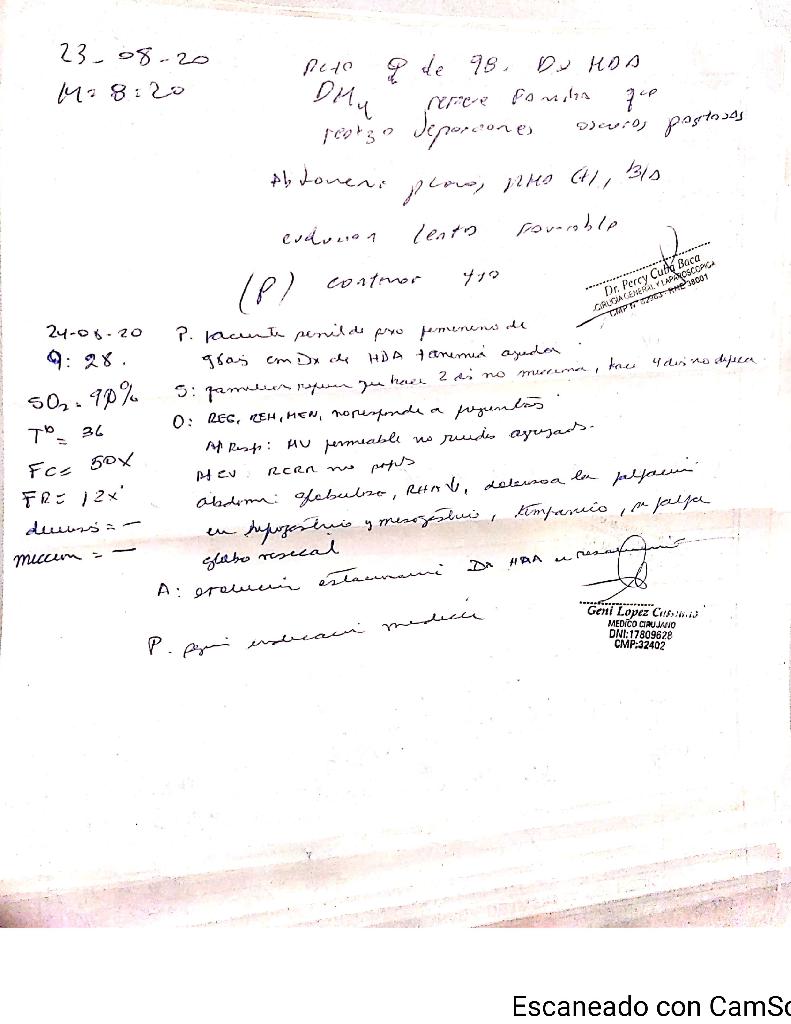 23-08-20
H= 8:20
Pcte ♀ de 98. Dx HDA
DM4 refiere familia que
realizo deposiciones oscuras pastosas
Abdomen: plano, RHA (+), B/D
evolucion lenta favorable
(P) continor tto
Dr. Percy Cuba Baca
CIRUGIA GENERAL Y LAPAROSCOPICA
24-08-20
9:28.
SO2 = 90%
T° = 36
FC = 50x'
FR = 12x'
deposi = -
miccion = -
P. paciente senil de sexo femenino de
98as con Dx de HDA + anemia aguda
S: familiar refiere que hace 2 dis no micciona, hace 4 dis no defeca
O: REG, REH, MEN, no responde a preguntas
Ap Resp: MV permeable no ruidos agregads.
ACV: RCRR no soplos
abdomi: globuloso, RHA ↓, dolorosa la palpacin
en hipogastrio y mesogastrio, timpanico, se palpa
globo vesical
A: evolucion estacionaria Dx HDA
P. segui indicacion medica
Geni Lopez
MEDICO CIRUJANO
DNI:17809628
CMP:32402
Escaneado con CamSc